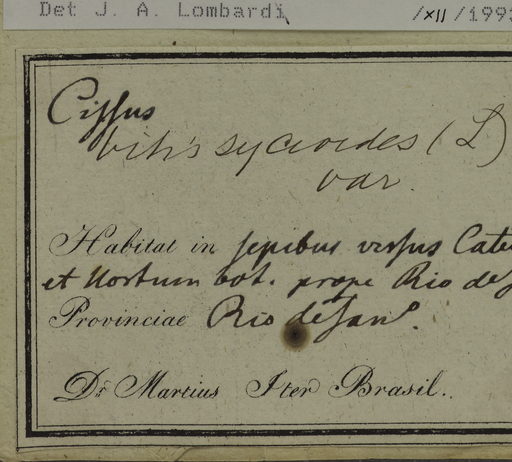 Det J. A. Lombardi /XII/199
Cissus
Vitis sycioides (L)
var.
Habitat in sepibus versus Cate
et hortum bot. prope Rio de J
Provinciae Rio de Jano.
Dr Martius Iter Brasil..